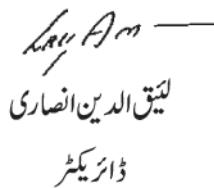 لئیق الدین انصاری
ڈائریکٹر